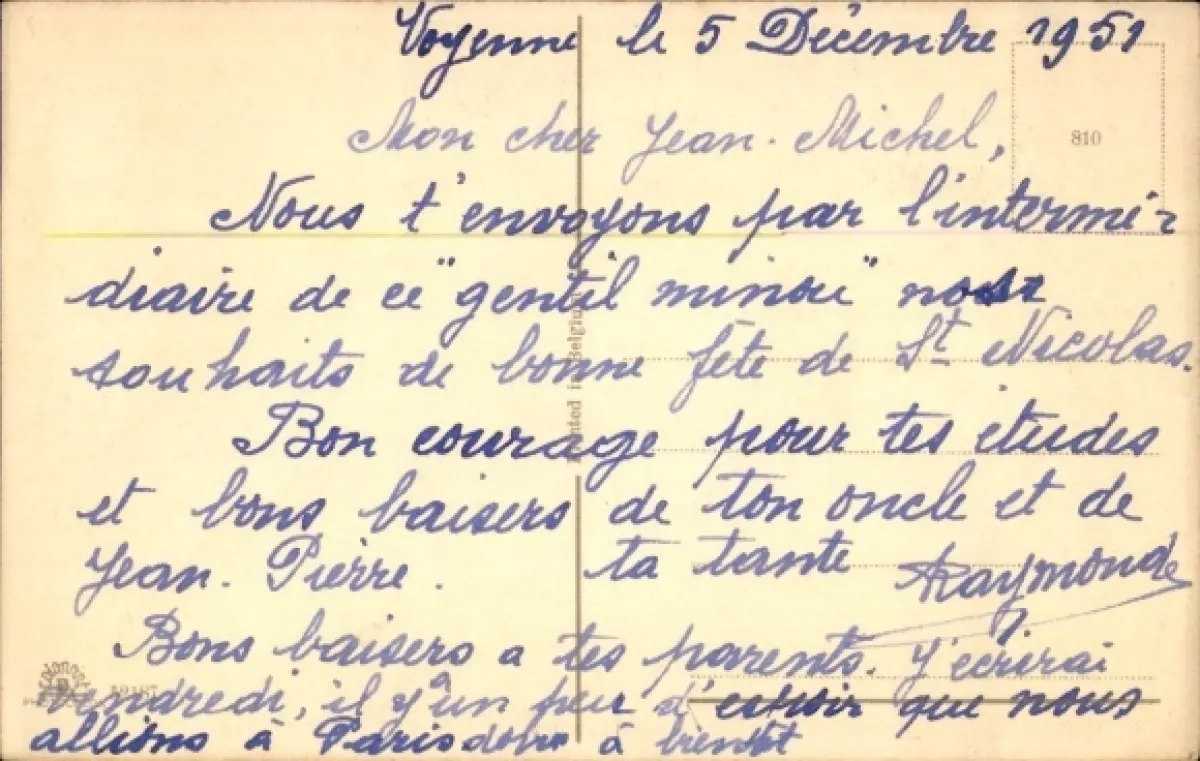 Voyenne le 5 Décembre 1951
810
Mon cher Jean-Michel,
Nous t'envoyons par l'intermé-
diaire de ce "gentil minou" nos
souhaits de bonne fête de St Nicolas.
Bon courage pour tes études
et bons baisers de ton oncle et de
Jean-Pierre. ta tante Raymonde
Bons baisers a tes parents. J'écrirai
vendredi, il y'a un peu d'espoir que nous
allions à Paris donc à bientot
Printed in Belgium